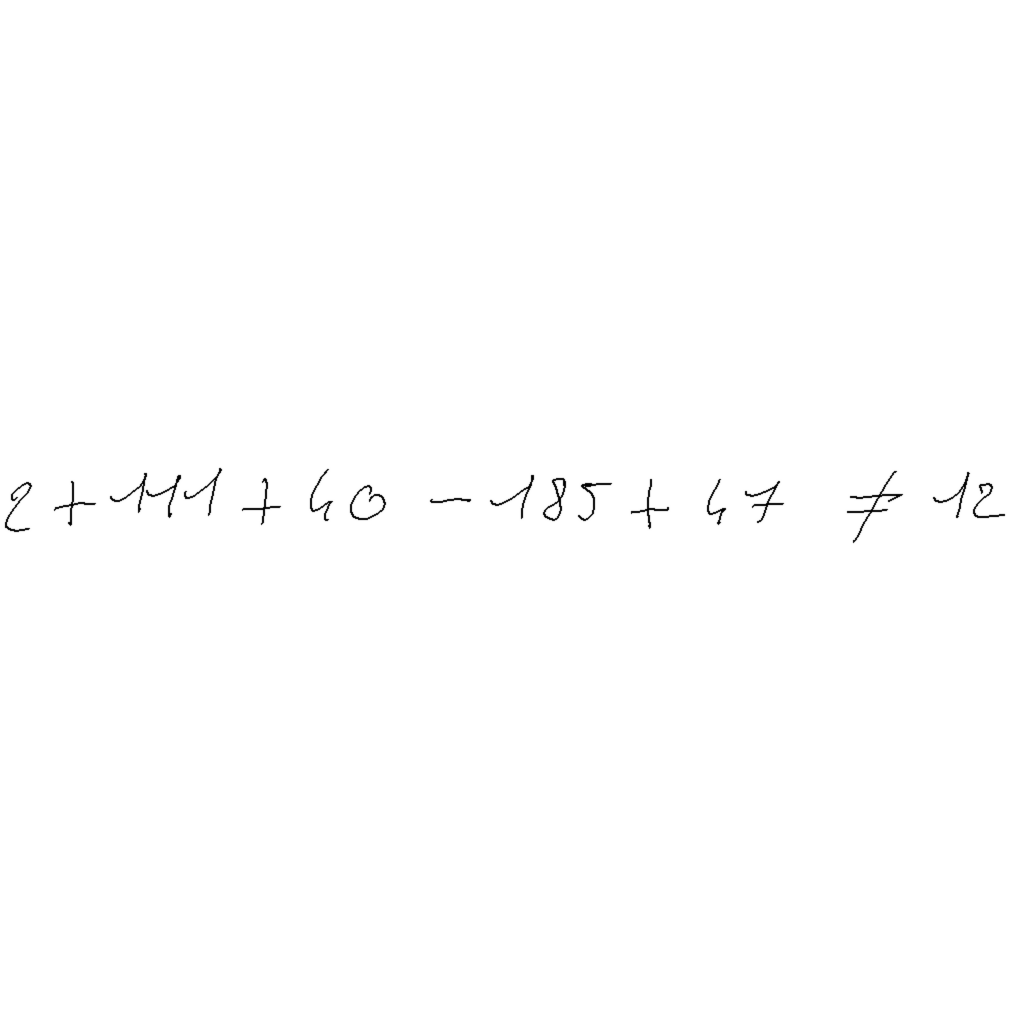 2 + 111 + 40 - 185 + 47 ≠ 12